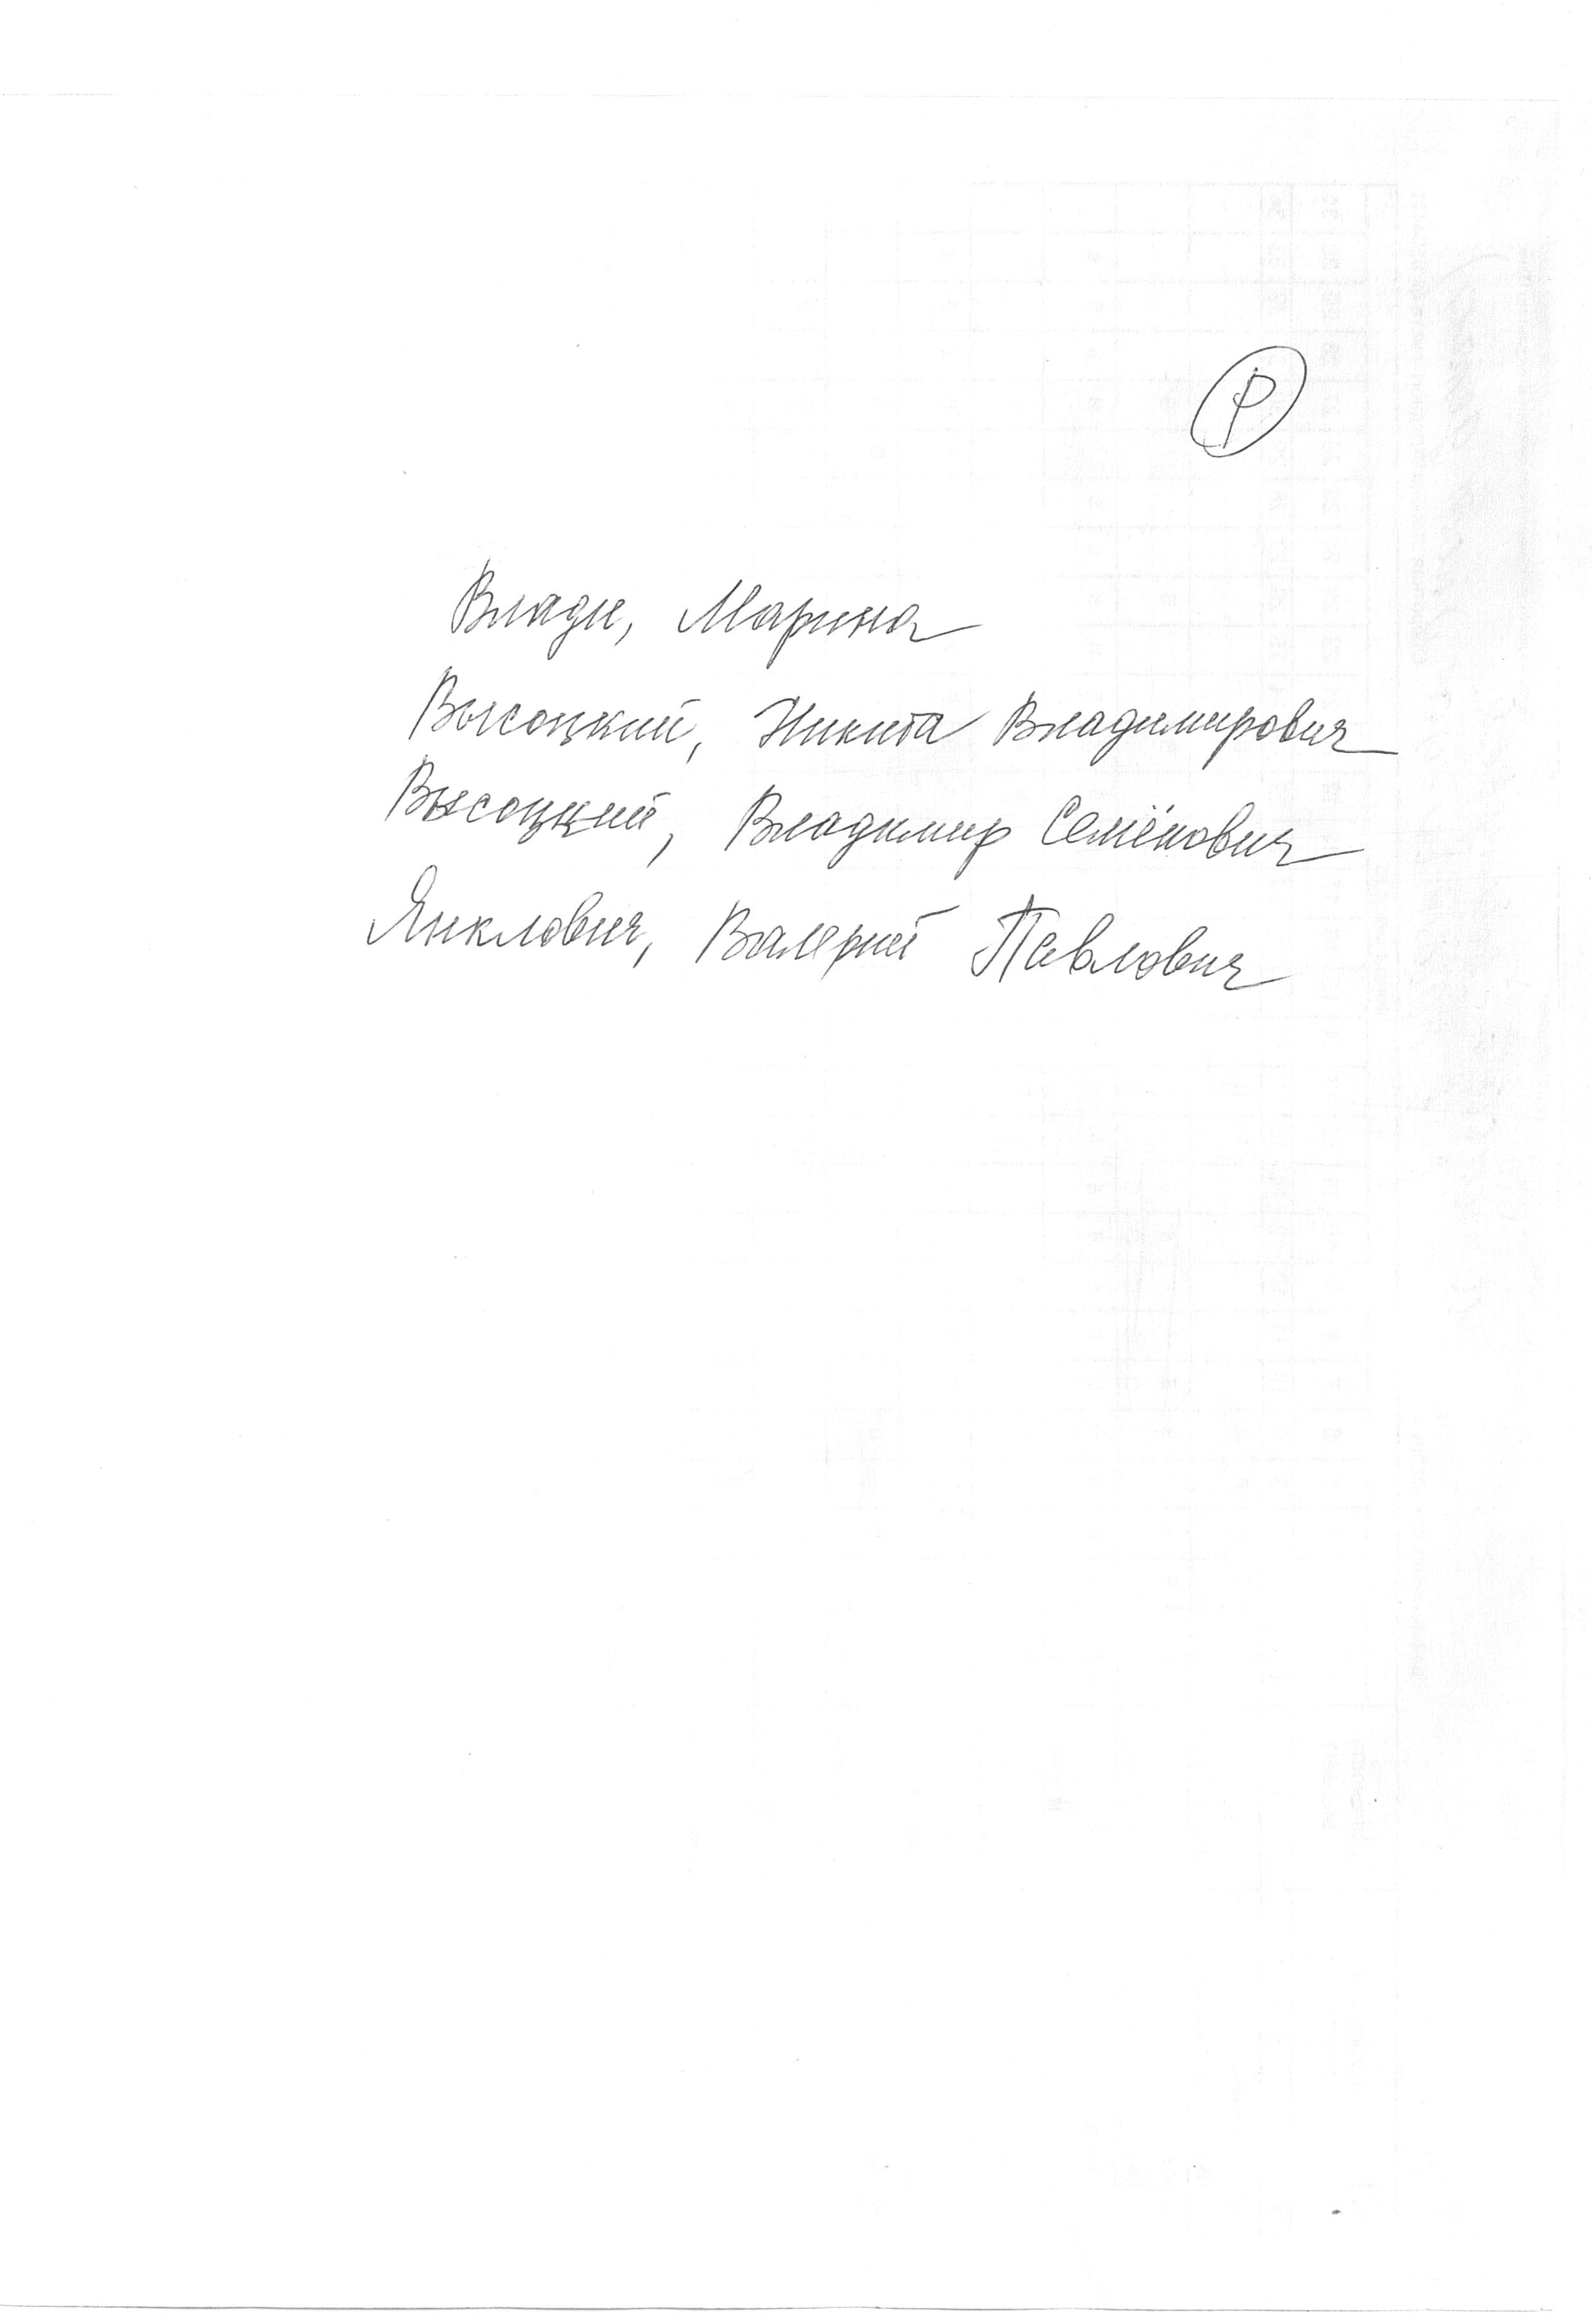 Р
Влади, Марина
Высоцкий, Никита Владимирович
Высоцкий, Владимир Семёнович
Янклович, Валерий Павлович